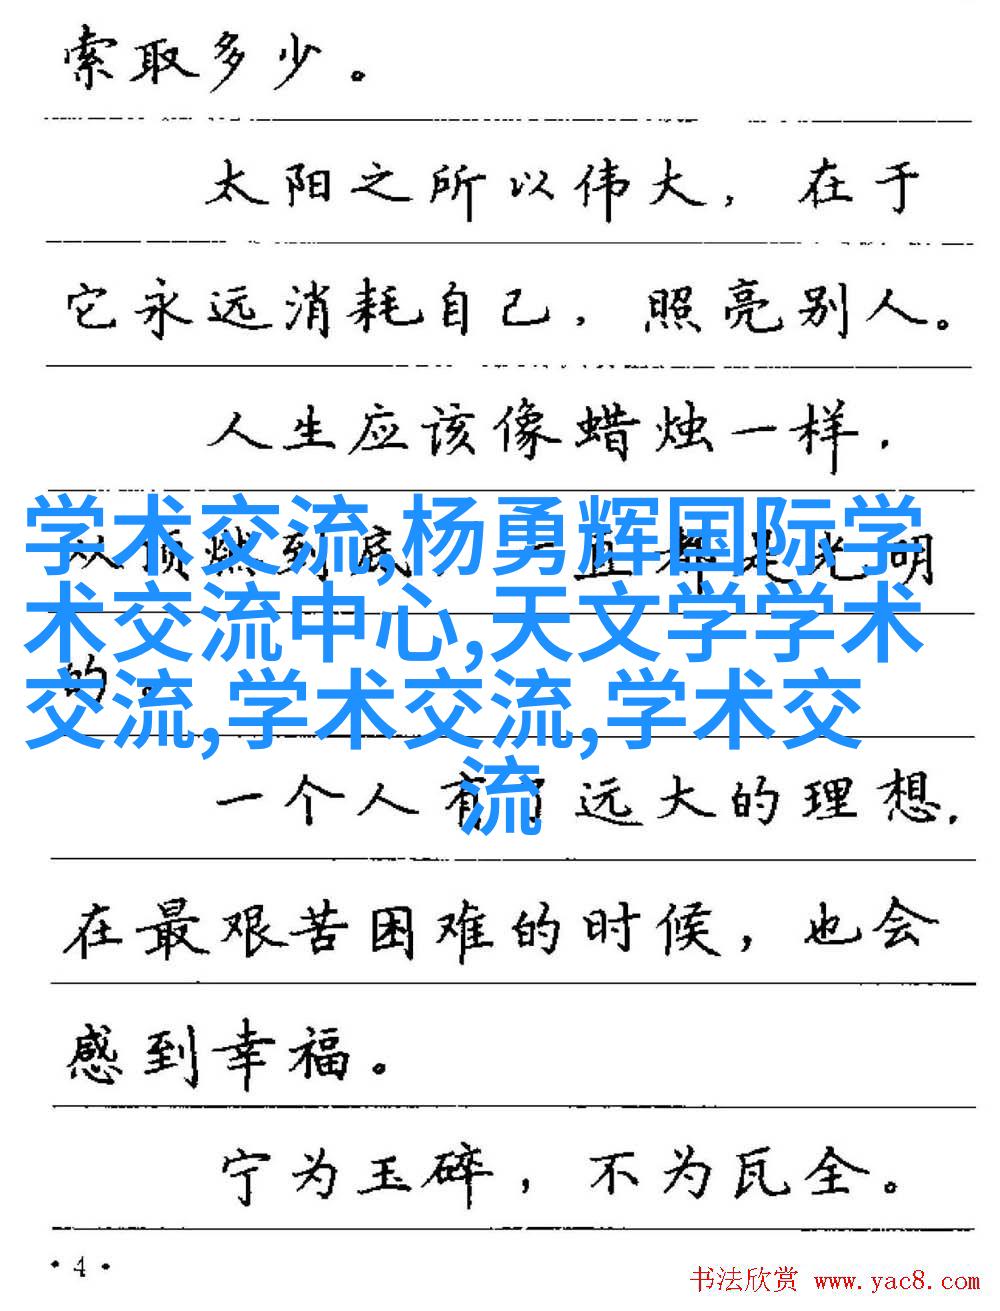 索取多少。
太阳之所以伟大，在于
它永远消耗自己，照亮别人。
人生应该像蜡烛一样，
从顶燃到底，一直都是光明
的。
学术交流,杨勇辉国际学
术交流中心,天文学学术
交流,学术交流,学术交
流
一个人有了远大的理想，
在最艰苦困难的时候，也会
感到幸福。
宁为玉碎，不为瓦全。
·4·
书法欣赏 www.yac8.com